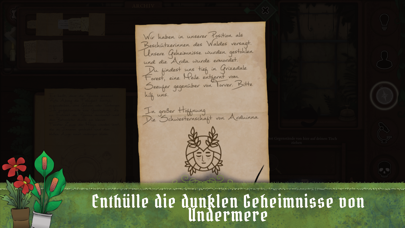 Wir haben in unserer Position als
Beschützerinnen des Waldes versagt.
Unsere Geheimnisse wurden gestohlen
und die Erde wurde verwundet.
Du findest uns tief in
Forest, eine Meile entfernt vom
gegenüber von Bitte
hilf uns.
In großer Hoffnung
Die Schwesternschaft von
Enthülle die dunklen Geheimnisse von
Undermere